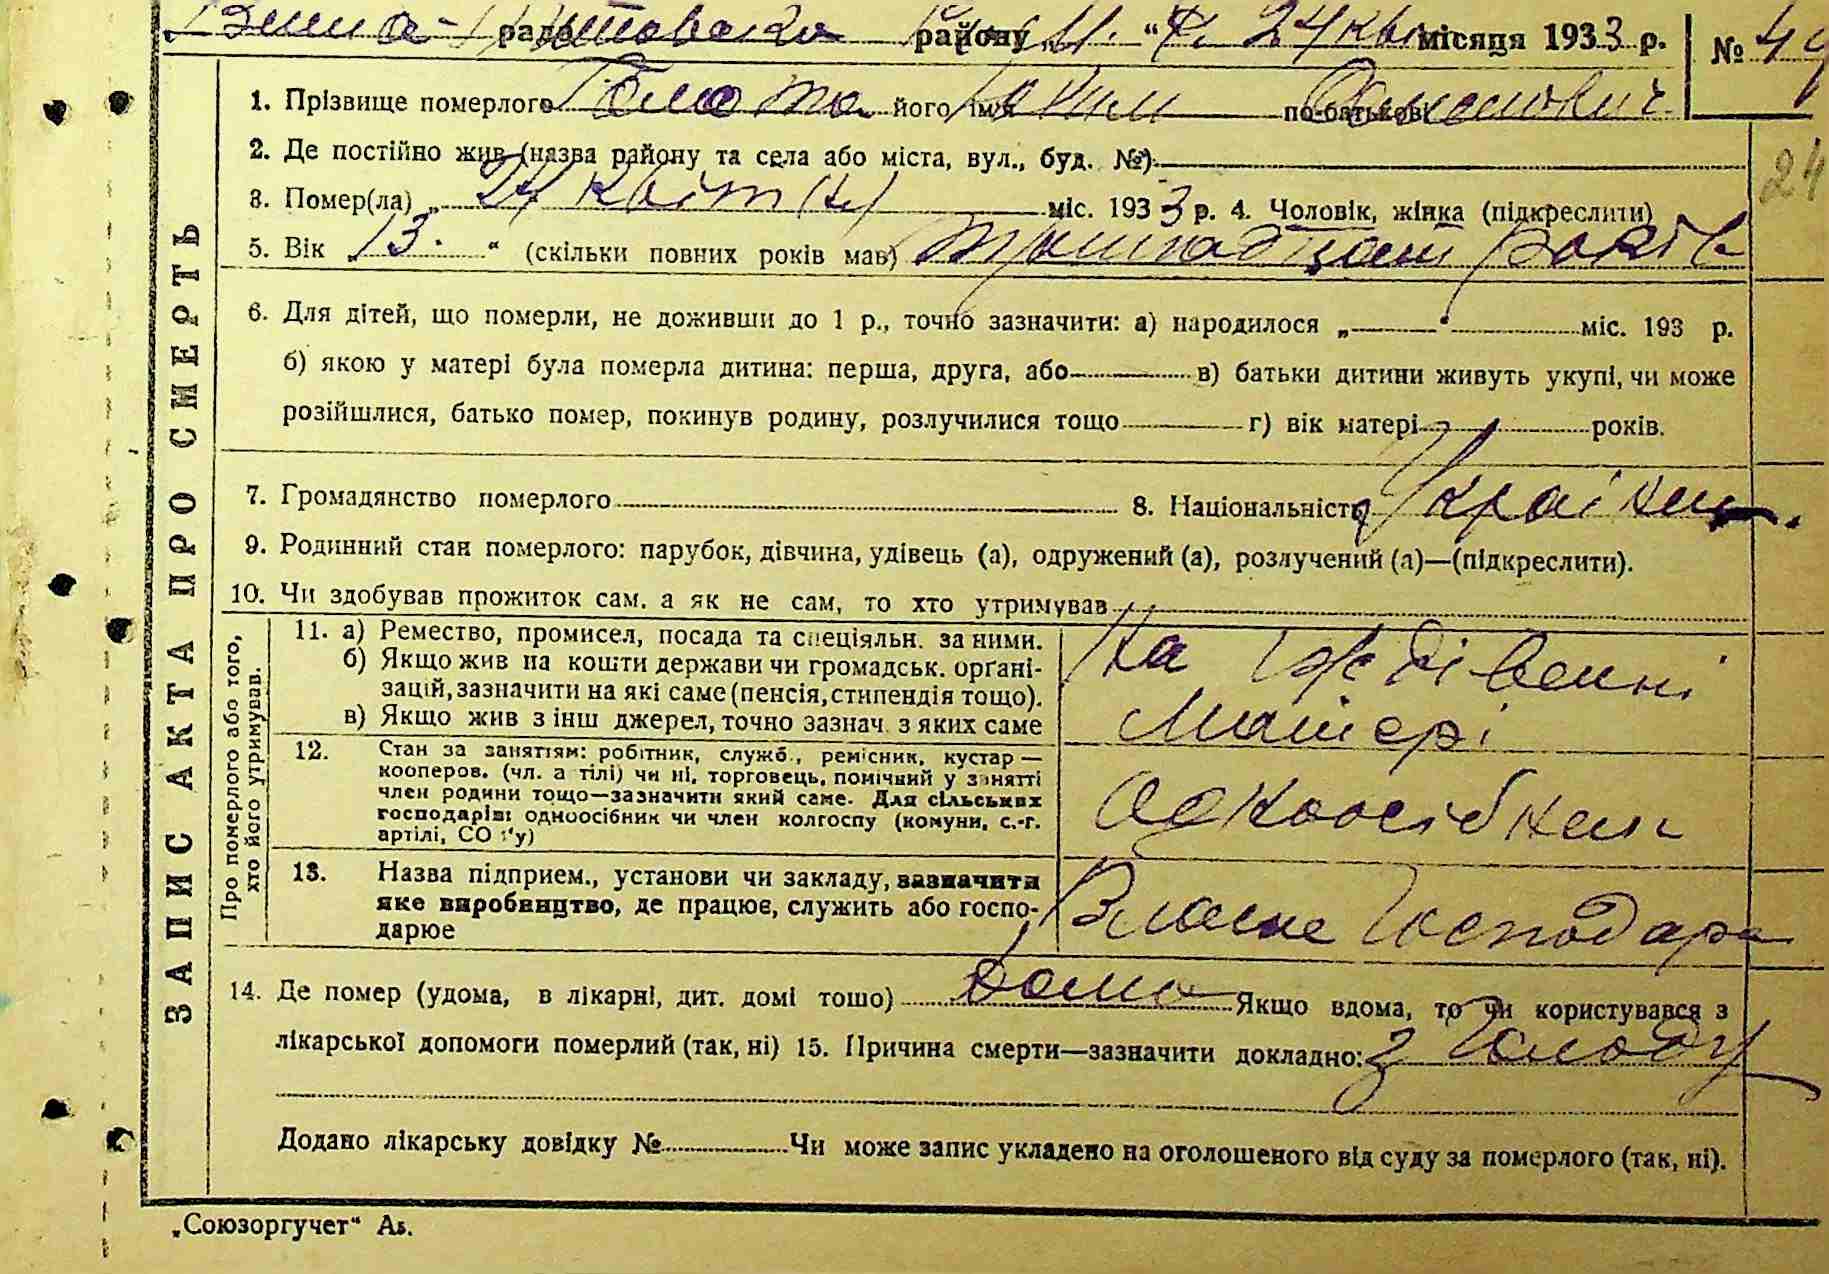 ЗАПИС АКТА ПРО СМЕРТЬ
рада району 24 місяця 1933 р. № 49
1. Прізвище померлого його імя по-батькові
24
2. Де постійно жив (назва району та села або міста, вул., буд. №)
3. Помер(ла) „ 24 квіт(ня) міс. 1933 р. 4. Чоловік, жінка (підкреслити)
5. Вік „ 13. “ (скільки повних років мав) років
6. Для дітей, що померли, не доживши до 1 р., точно зазначити: а) народилося „ “ міс. 193 р.
б) якою у матері була померла дитина: перша, друга, або в) батьки дитини живуть укупі, чи може
розійшлися, батько помер, покинув родину, розлучилися тощо г) вік матері років.
7. Громадянство померлого 8. Національність Українець.
9. Родинний стан померлого: парубок, дівчина, удівець (а), одружений (а), розлучений (а)—(підкреслити).
10. Чи здобував прожиток сам, а як не сам, то хто утримував
Про померлого або того,
хто його утримував.
11. а) Ремество, промисел, посада та спеціяльн. за ними.
б) Якщо жив на кошти держави чи громадськ. орґані-
зацій, зазначити на які саме (пенсія, стипендія тощо).
в) Якщо жив з інш джерел, точно зазнач. з яких саме
На
Матері
12. Стан за заняттям: робітник, служб., ремісник, кустар —
кооперов. (чл. а тілі) чи ні, торговець, помічний у занятті
член родини тощо—зазначити який саме. Для сільських
господарів: одноосібник чи член колгоспу (комуни, с.-г.
артілі, СО у)
Одноосібник
13. Назва підприєм., установи чи закладу, зазначити
яке виробництво, де працює, служить або госпо-
дарює
Власне господар
14. Де помер (удома, в лікарні, дит. домі тощо) Дома Якщо вдома, то чи користувався з
лікарської допомоги померлий (так, ні) 15. Причина смерти—зазначити докладно: з голоду
Додано лікарську довідку № Чи може запис укладено на оголошеного від суду за померлого (так, ні).
„Союзоргучет“ Ав.